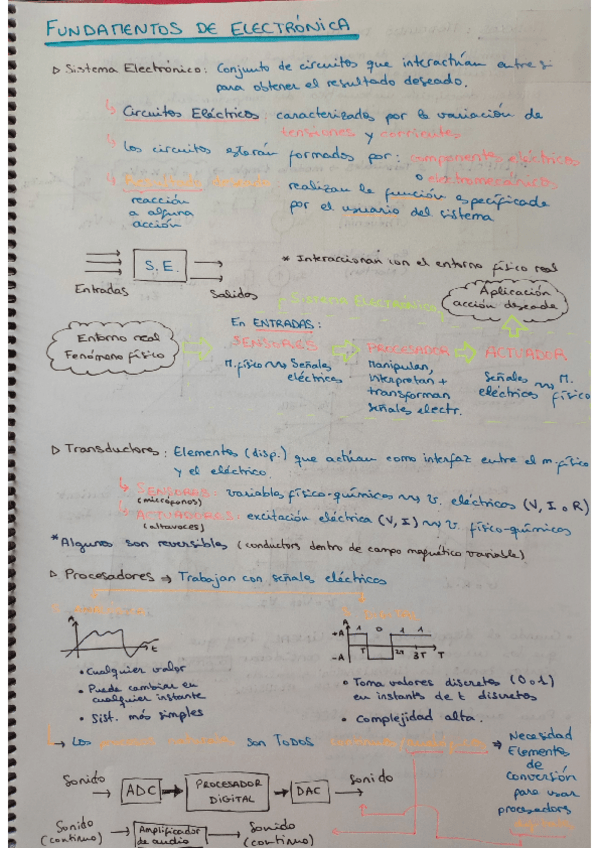 FUNDAMENTOS DE ELECTRÓNICA
▷ Sistema Electrónico: Conjunto de circuitos que interactúan entre si
para obtener el resultado deseado.
↳ Circuitos Eléctricos: caracterizados por la variación de
tensiones y corrientes
↳ Los circuitos estarán formados por: componentes eléctricos
o electromecánicos
↳ Resultado deseado
realizan la función especificada
reacción
por el usuario del sistema
a alguna
acción
S.E.
Entradas
Salidas
* Interaccionan con el entorno físico real
Aplicación
acción deseada
SISTEMA ELECTRÓNICO
Entorno real
Fenómeno físico
En ENTRADAS:
SENSORES
PROCESADOR
ACTUADOR
M. físico ⇝ Señales
eléctricas
Manipulan,
interpretan +
transforman
señales electr.
Señales ⇝ M.
eléctricas físico
▷ Transductores: Elementos (disp.) que actúan como interfaz entre el m. físico
y el eléctrico.
↳ SENSORES: variables físico-químicas ⇝ v. eléctricas (V, I o R)
(micrófonos)
↳ ACTUADORES: excitación eléctrica (V, I) ⇝ v. físico-químicas
(altavoces)
*Algunos son reversibles (conductors dentro de campo magnético variable)
▷ Procesadores → Trabajan con señales eléctricas
t
+A
-A
1 0 1 1
T 2T 3T T
• Cualquier valor
• Puede cambiar en
cualquier instante
• Sist. más simples
• Toma valores discretos (0 o 1)
en instants de t discretos
• Complejidad alta.
↳ Los
son TODOS
⇒ Necesidad
Elementos
de
conversión
para usar
procesadors
Sonido
ADC
PROCESADOR
DIGITAL
DAC
sonido
Sonido
(continuo)
Amplificador
de audio
Sonido
(continuo)